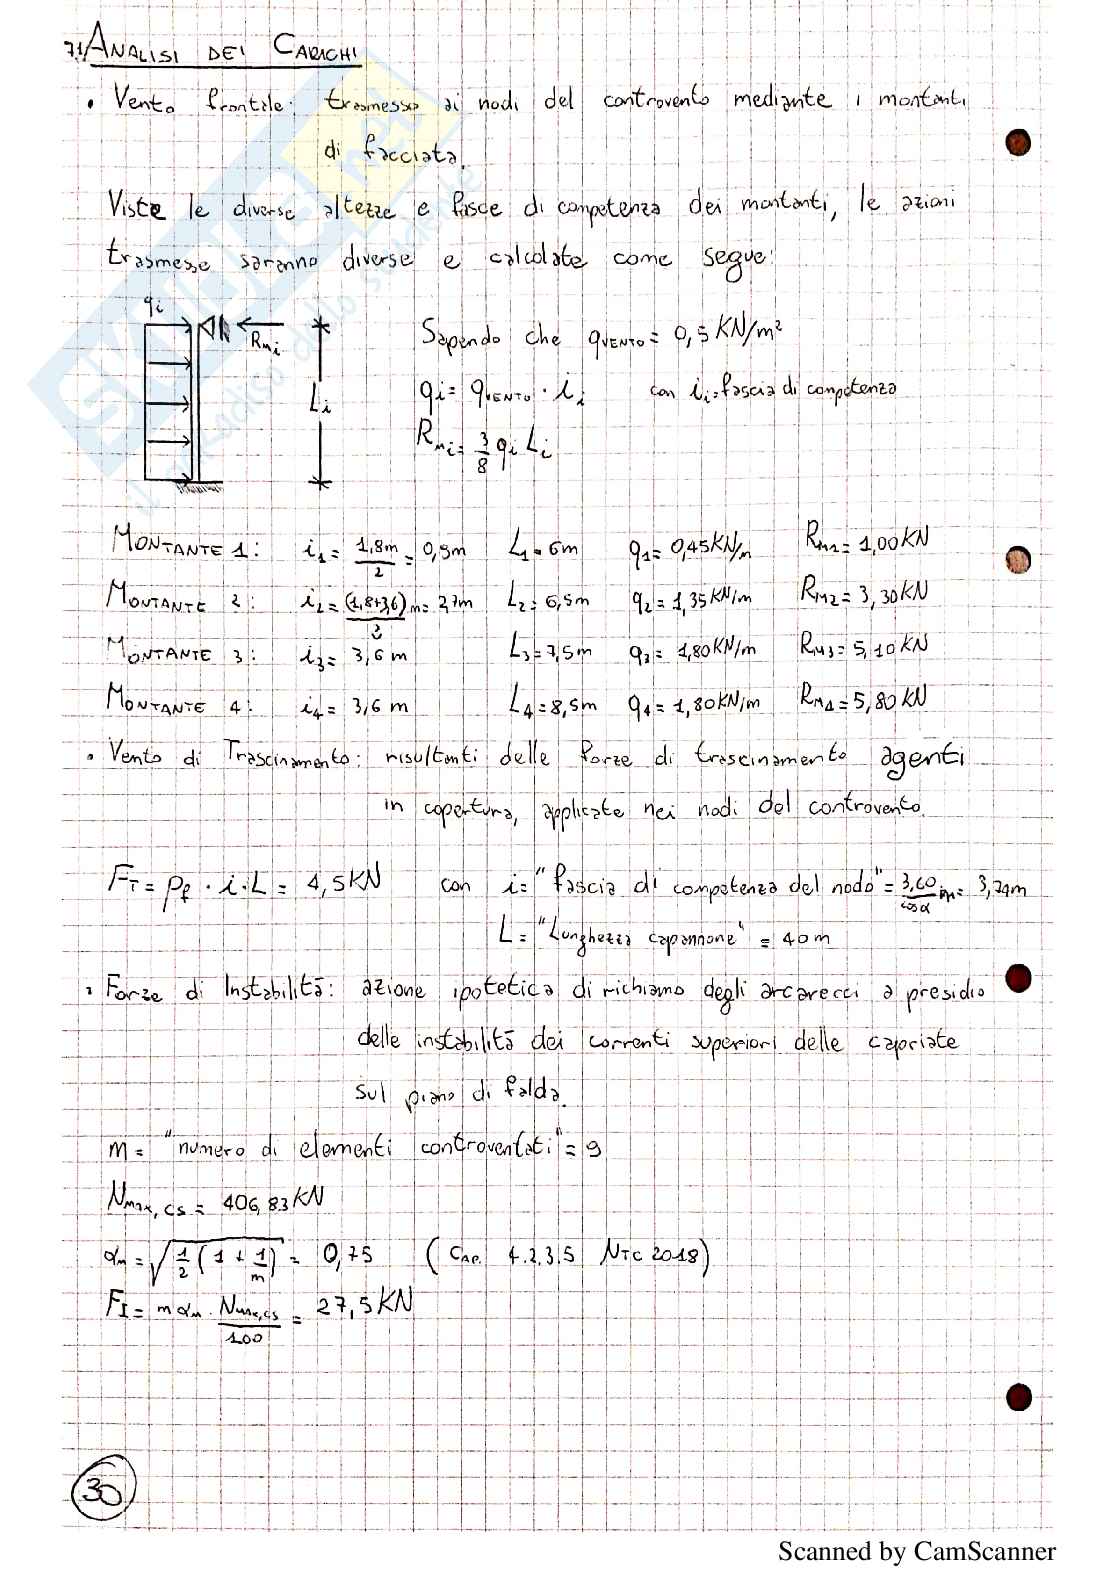 7.1 ANALISI DEI CARICHI
• Vento frontale: trasmesso ai nodi del controvento mediante i montanti
di facciata.
Viste le diverse altezze e fasce di competenza dei montanti, le azioni
trasmesse saranno diverse e calcolate come segue:
qi
RMi
Li
Sapendo che qVENTO = 0,5 KN/m²
qi = qVENTO · ii con ii = fascia di competenza
RMi = 3/8 qi Li
MONTANTE 1: i1 = 1,8m/2 = 0,9m L1 = 6m q1 = 0,45 KN/m RM1 = 1,00 KN
MONTANTE 2: i2 = (1,8+3,6)/2 m = 2,7m L2 = 6,5m q2 = 1,35 KN/m RM2 = 3,30 KN
MONTANTE 3: i3 = 3,6 m L3 = 7,5m q3 = 1,80 KN/m RM3 = 5,10 KN
MONTANTE 4: i4 = 3,6 m L4 = 8,5m q4 = 1,80 KN/m RM4 = 5,80 KN
• Vento di Trascinamento: risultanti delle forze di trascinamento agenti
in copertura, applicate nei nodi del controvento.
FT = pf · i · L = 4,5 KN con i = "fascia di competenza del nodo" = 3,60/cosα m = 3,74m
L = "Lunghezza capannone" = 40 m
• Forze di Instabilità: azione ipotetica di richiamo degli arcarecci a presidio
delle instabilità dei correnti superiori delle capriate
sul piano di falda.
m = "numero di elementi controventati" = 9
Nmax,cs = 406,83 KN
αm = √(1/2 (1 + 1/m)) = 0,75 (CAP. 4.2.3.5 NTC 2018)
FI = m αm · Nmax,cs/100 = 27,5 KN
30
Scanned by CamScanner